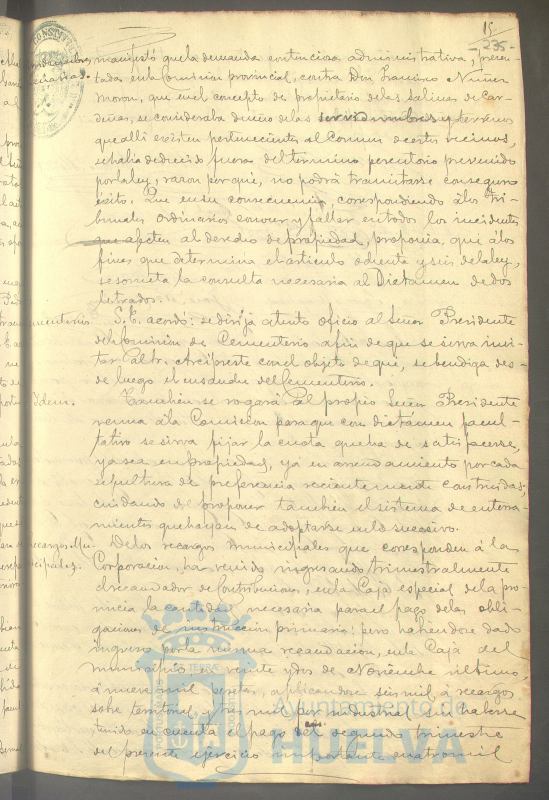 15
235-
manifestó que la demanda contenciosa administrativa, presen-
tadas en la Comision provincial, contra Don Francisco Nuñez
Moron, que en el concepto de propietario de las salinas de Car-
deñas, se consideraba dueño de las servidumbres y terrenos
que alli existen pertenecientes al Comun de estos vecinos,
se habia deducido fuera del termino perentorio prevenido
por la ley, razon por que, no podrá tramitarse con seguro
éxito. Que en su consecuencia, correspondiendo á los Tri-
bunales Ordinarios conocer y fallar en todos los incidentes
que afecten al derecho de propiedad, proponia, que á los
fines que determina el articulo ochenta y seis de la ley,
se someta la consulta necesaria al Dictamen de dos
letrados.
Cementerio. S. E. acordó: se dirija atento oficio al Señor Presidente
de la Comision de Cementerio a fin de que se sirva invi-
tar al Sr. Arcipreste con el objeto de que, se bendiga des-
de luego el ensanche del Cementerio.
Idem. Tambien se rogará al propio Señor Presidente
reuna á la Comision para que con dictámen facul-
tativo se sirva fijar la cuota que ha de satisfacerse,
ya sea en propiedad, ya en arrendamiento por cada
sepultura de preferencia recientemente construidas,
cuidando de proponer tambien el sistema de enterra-
mientos que hayan de adoptarse en lo sucesivo.
De los recargos municipales que corresponden á la
Corporacion, ha venido ingresando trimestralmente
el recaudador de Contribuciones, en la Caja especial de la pro-
vincia la cantidad necesaria para el pago de las obli-
gaciones de instruccion primaria; pero habiendose dado
ingreso por la misma recaudacion, en la Caja del
municipio en veinte y dos de Noviembre último,
á nueve mil pesetas, aplicandose seis mil á recargos
sobre territorial y tres mil por industrial sin haberse
tenido en cuenta el pago del segundo trimestre
del presente ejercicio importante cuatro mil
Ayuntamiento de
HUELVA